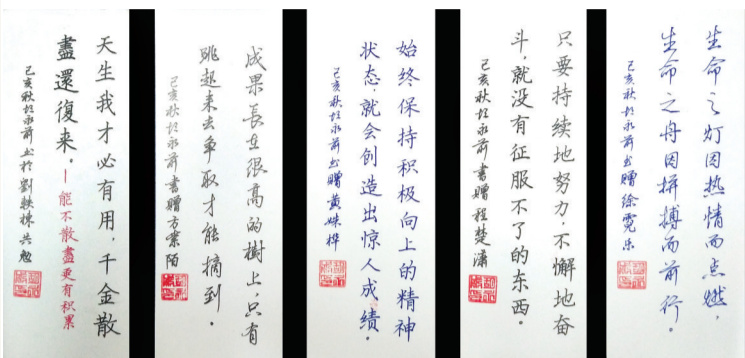 天生我才必有用，千金散
盡還復来。—能不散盡更有积累
己亥秋永前书於劉軼棟共勉
成果長在很高的樹上，只有
跳起来去争取才能摘到。
己亥秋永前書贈方業陌
始终保持积极向上的精神
状态，就会创造出惊人成绩。
己亥秋永前书赠黄姝桦
只要持续地努力，不懈地奋
斗，就没有征服不了的东西。
己亥秋永前書贈程楚瀟
生命之灯因热情而点燃，
生命之舟因拼搏而前行。
己亥秋永前书赠徐霓乐